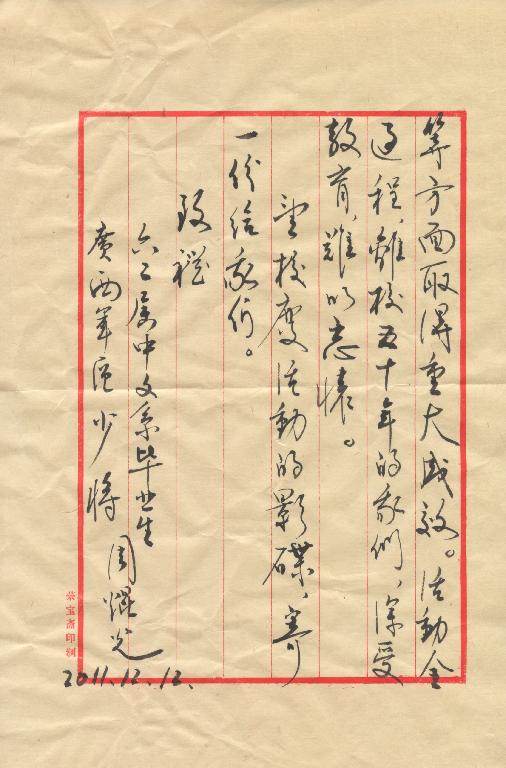 等方面取得重大成效。活动全
过程，離校五十年的我们，深受
教育，难以忘懷。
望校慶活動的影碟，寄
一份给我们。
致禮
六二届中文系毕业生
廣西军区少将 周
2011.12.12.
荣宝斋印制